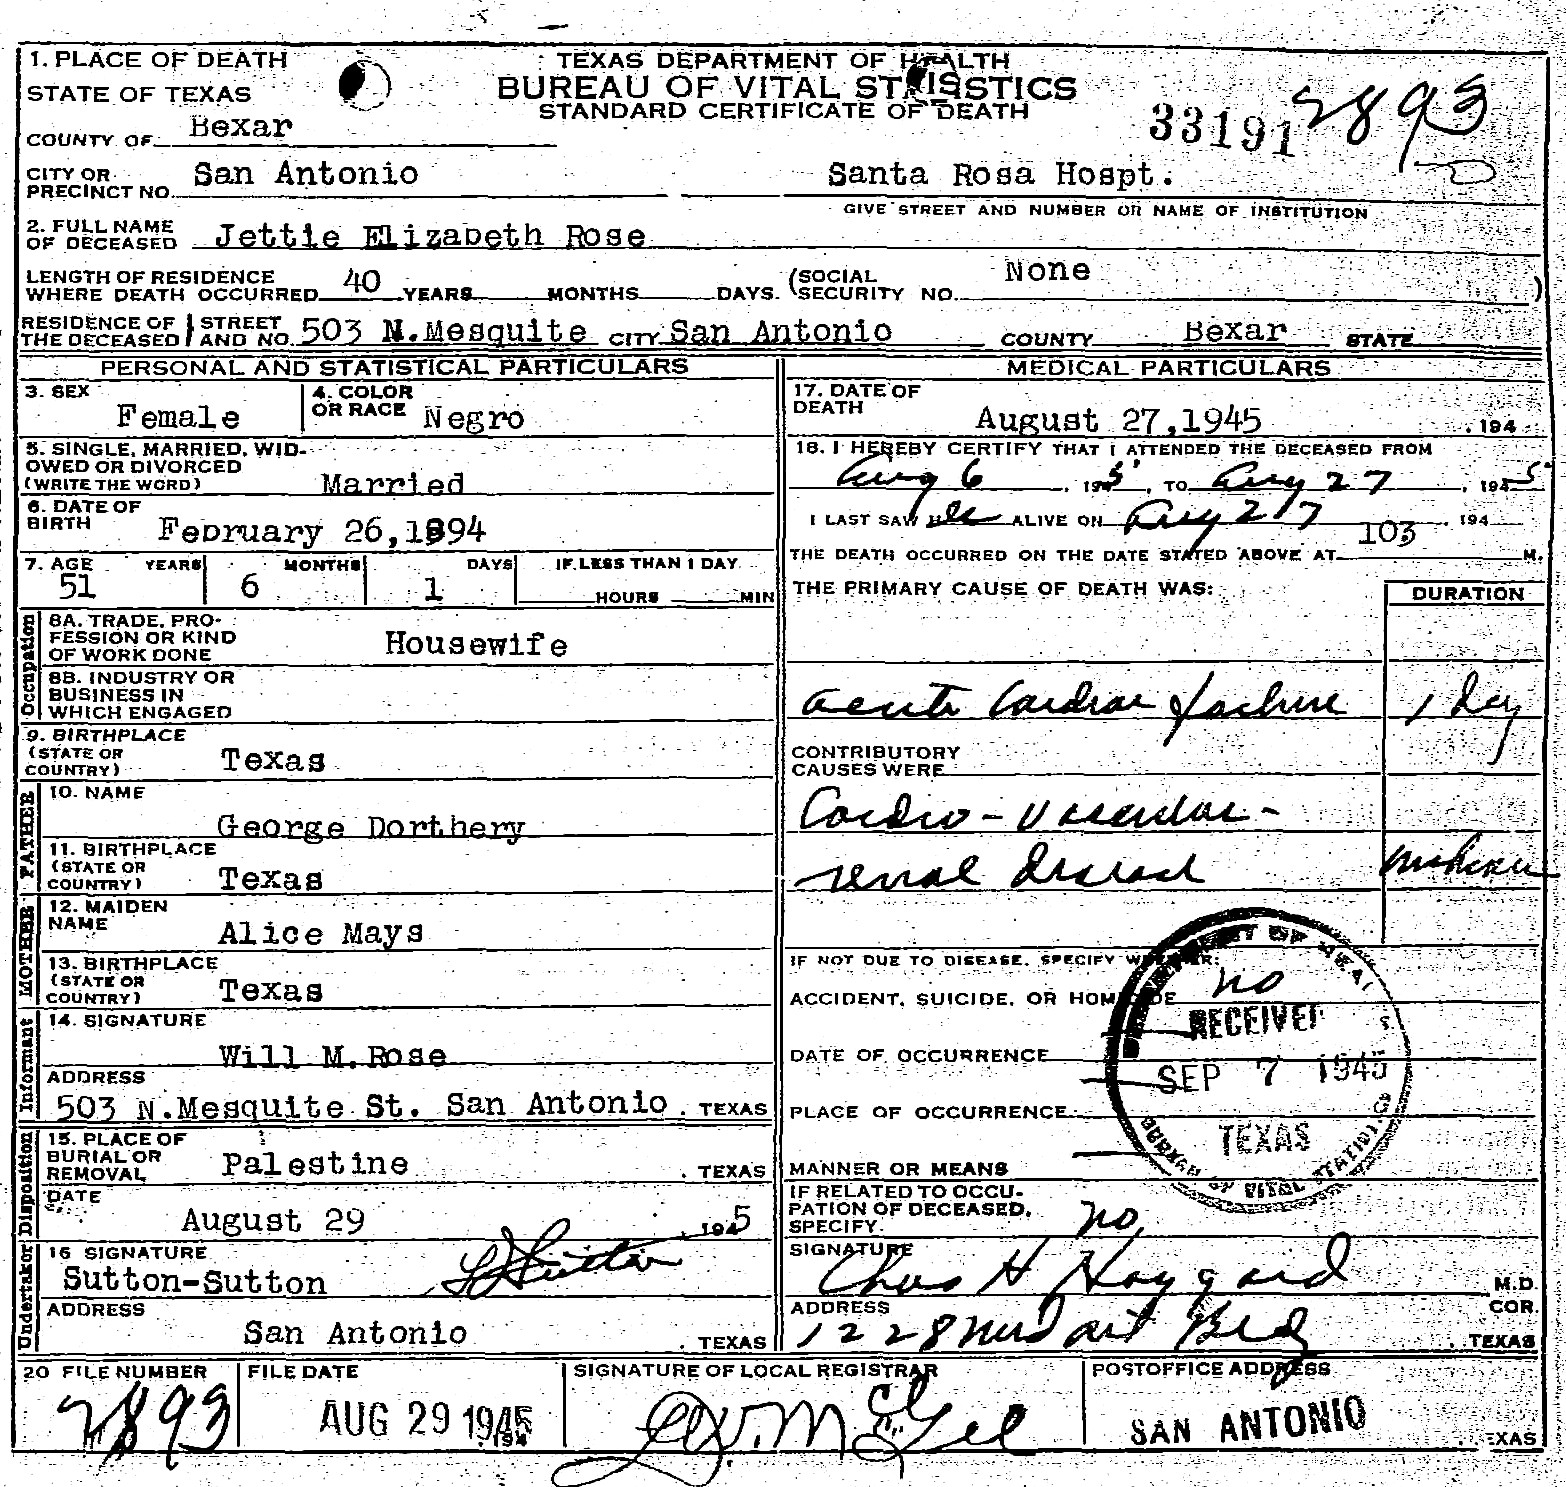 1. PLACE OF DEATH
STATE OF TEXAS
TEXAS DEPARTMENT OF HEALTH
BUREAU OF VITAL STATISTICS
STANDARD CERTIFICATE OF DEATH
33191 2893
COUNTY OF Bexar
CITY OR PRECINCT NO. San Antonio Santa Rosa Hospt.
GIVE STREET AND NUMBER OR NAME OF INSTITUTION
2. FULL NAME OF DECEASED Jettie Elizabeth Rose
LENGTH OF RESIDENCE WHERE DEATH OCCURRED 40 YEARS MONTHS DAYS. (SOCIAL SECURITY NO. None )
RESIDENCE OF THE DECEASED STREET AND NO. 503 N.Mesquite CITY San Antonio COUNTY Bexar STATE
PERSONAL AND STATISTICAL PARTICULARS
3. SEX Female
4. COLOR OR RACE Negro
5. SINGLE, MARRIED, WIDOWED OR DIVORCED (WRITE THE WORD) Married
6. DATE OF BIRTH February 26,1894
7. AGE 51 YEARS 6 MONTHS 1 DAYS IF LESS THAN 1 DAY HOURS MIN
Occupation
8A. TRADE, PROFESSION OR KIND OF WORK DONE Housewife
8B. INDUSTRY OR BUSINESS IN WHICH ENGAGED
9. BIRTHPLACE (STATE OR COUNTRY) Texas
FATHER
10. NAME George Dorthery
11. BIRTHPLACE (STATE OR COUNTRY) Texas
MOTHER
12. MAIDEN NAME Alice Mays
13. BIRTHPLACE (STATE OR COUNTRY) Texas
Informant
14. SIGNATURE Will M.Rose
ADDRESS 503 N.Mesquite St. San Antonio, TEXAS
Disposition
15. PLACE OF BURIAL OR REMOVAL Palestine, TEXAS
DATE August 29, 1945
Undertaker
16 SIGNATURE Sutton-Sutton Sutton
ADDRESS San Antonio, TEXAS
MEDICAL PARTICULARS
17. DATE OF DEATH August 27,1945, 194
18. I HEREBY CERTIFY THAT I ATTENDED THE DECEASED FROM
Aug 6, 1945, TO Aug 27, 1945
I LAST SAW her ALIVE ON Aug 27, 194
THE DEATH OCCURRED ON THE DATE STATED ABOVE AT 103 M.
THE PRIMARY CAUSE OF DEATH WAS: DURATION
acute Cardiac failure 1 day
CONTRIBUTORY CAUSES WERE
Cardio-Vascular-
renal disease
IF NOT DUE TO DISEASE, SPECIFY WHETHER:
ACCIDENT, SUICIDE, OR HOMICIDE no
DATE OF OCCURRENCE
PLACE OF OCCURRENCE
MANNER OR MEANS
RECEIVED
SEP 7 1945
TEXAS
IF RELATED TO OCCUPATION OF DECEASED, SPECIFY. no
SIGNATURE Chas H Haggard M.D. COR.
ADDRESS 1228 Bldg, TEXAS
20 FILE NUMBER 2893
FILE DATE AUG 29 1945
SIGNATURE OF LOCAL REGISTRAR
POSTOFFICE ADDRESS SAN ANTONIO, TEXAS